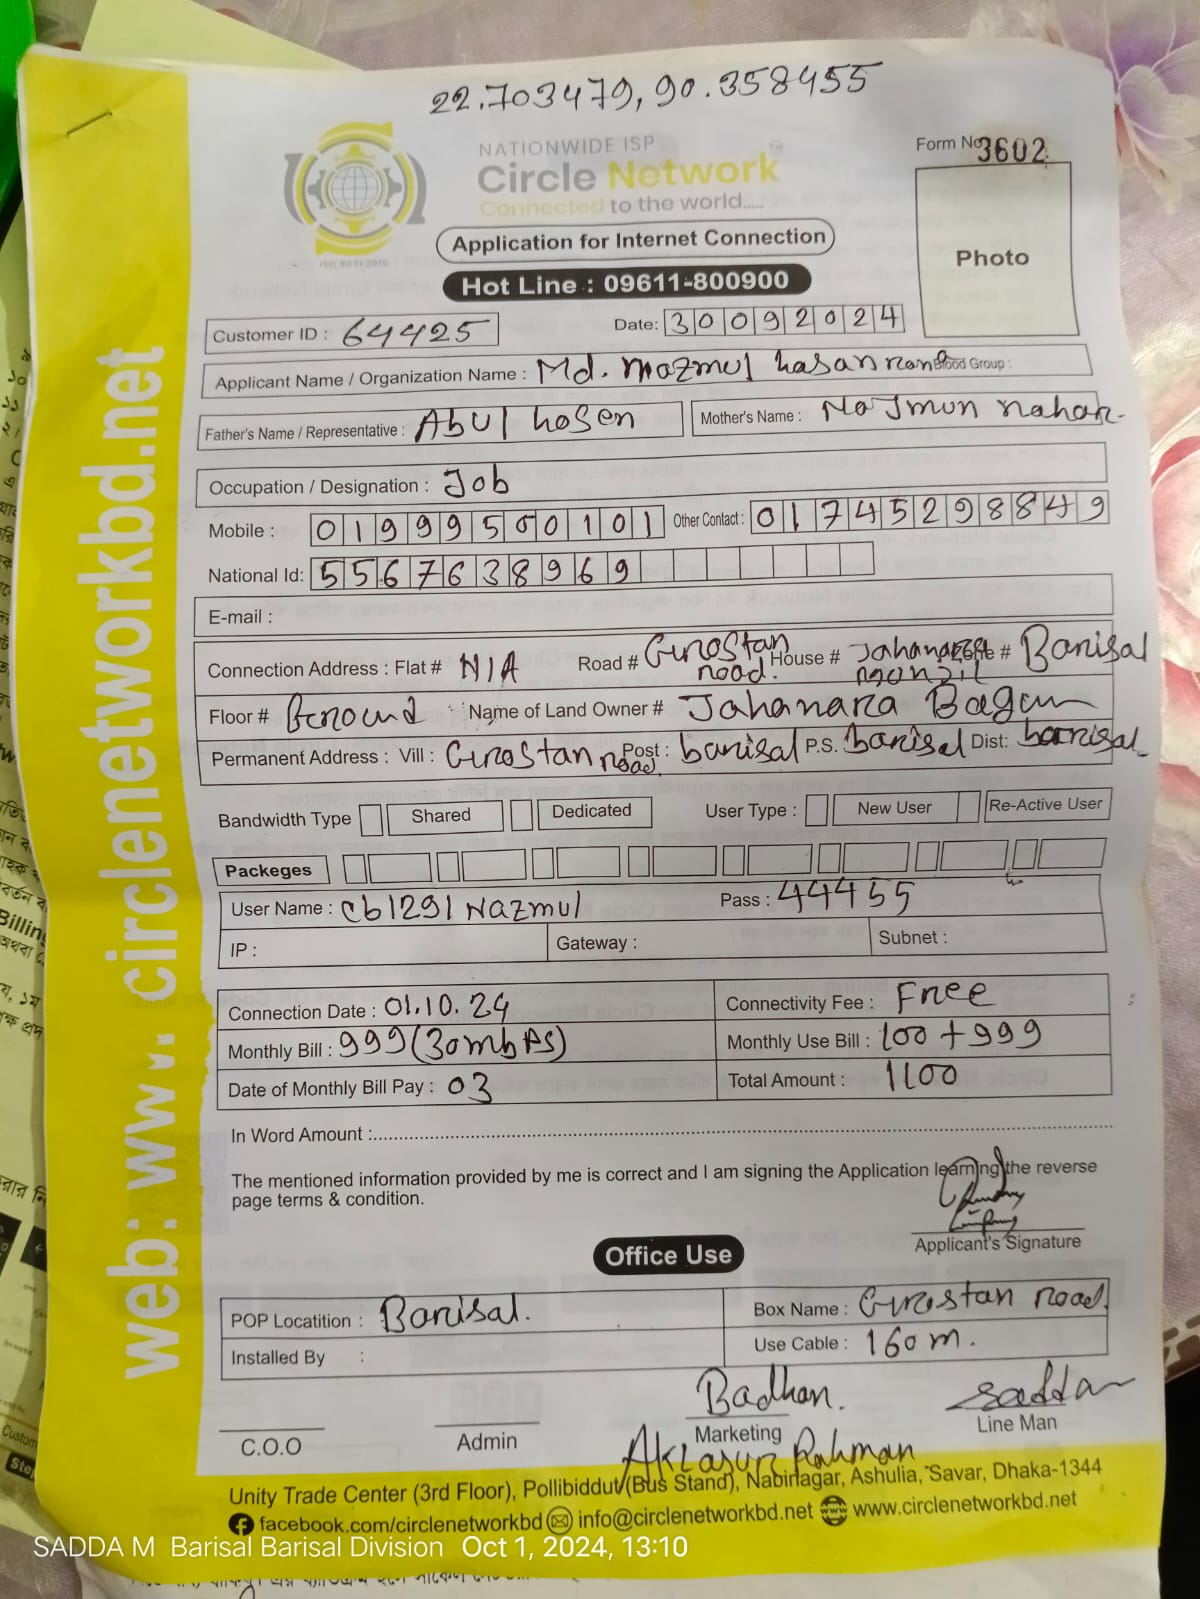 22.703479, 90.358455
NATIONWIDE ISP
Circle Network
Connected to the world.....
ISO 9001:2015
Form No 3602
Photo
Application for Internet Connection
Hot Line : 09611-800900
Customer ID : 64425
Date: 30092024
Applicant Name / Organization Name : Md. Nazmul hasan Blood Group :
Father's Name / Representative : Abul hosen
Mother's Name : Najmun nahar
Occupation / Designation : Job
Mobile : 01999500101 Other Contact : 01745298849
National Id: 5567638969
E-mail :
Connection Address : Flat # N/A Road # Gorostan road. House # Jahanara monzil # Barisal
Floor # Ground Name of Land Owner # Jahanara Begum
Permanent Address : Vill : Gorostan road Post : barisal P.S. barisal Dist: barisal
Bandwidth Type Shared Dedicated User Type : New User Re-Active User
Packeges
User Name : cb1291 Nazmul Pass : 44455
IP : Gateway : Subnet :
Connection Date : 01.10.24 Connectivity Fee : Free
Monthly Bill : 999 (30mbps) Monthly Use Bill : 100 + 999
Date of Monthly Bill Pay : 03 Total Amount : 1100
In Word Amount :
The mentioned information provided by me is correct and I am signing the Application learning the reverse
page terms & condition.
Applicant's Signature
Office Use
POP Locatition : Barisal. Box Name : Gorostan road.
Installed By : Use Cable : 160m.
Badhan. Sadda
C.O.O Admin Marketing Line Man
Rahman
Unity Trade Center (3rd Floor), Pollibiddut (Bus Stand), Nabinagar, Ashulia, Savar, Dhaka-1344
facebook.com/circlenetworkbd info@circlenetworkbd.net www.circlenetworkbd.net
web: www.circlenetworkbd.net
SADDA M Barisal Barisal Division Oct 1, 2024, 13:10